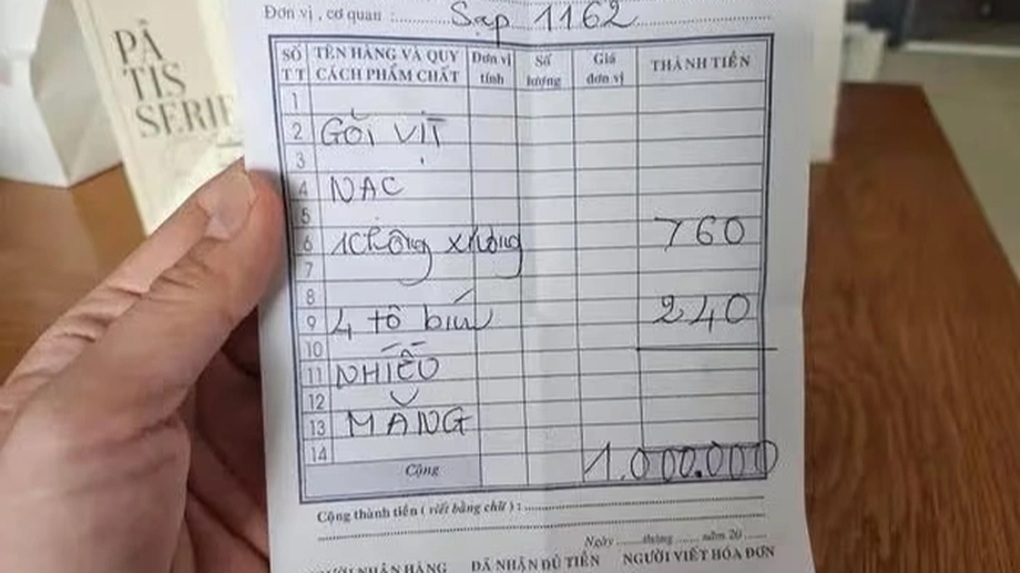 PÂ
TIS
SERIE
Đơn vị , cơ quan : Sạp 1162
SỐ TT TÊN HÀNG VÀ QUY CÁCH PHẨM CHẤT Đơn vị tính Số lượng Giá đơn vị THÀNH TIỀN
1
2 GỎI VỊT
3
4 NẠC
5
6 không xương 760
7
8
9 4 tô bún 240
10
11 NHIỀU
12
13 MĂNG
14
Cộng 1.000.000
Cộng thành tiền ( viết bằng chữ ) :
Ngày tháng năm 20
NGƯỜI NHẬN HÀNG ĐÃ NHẬN ĐỦ TIỀN NGƯỜI VIẾT HÓA ĐƠN